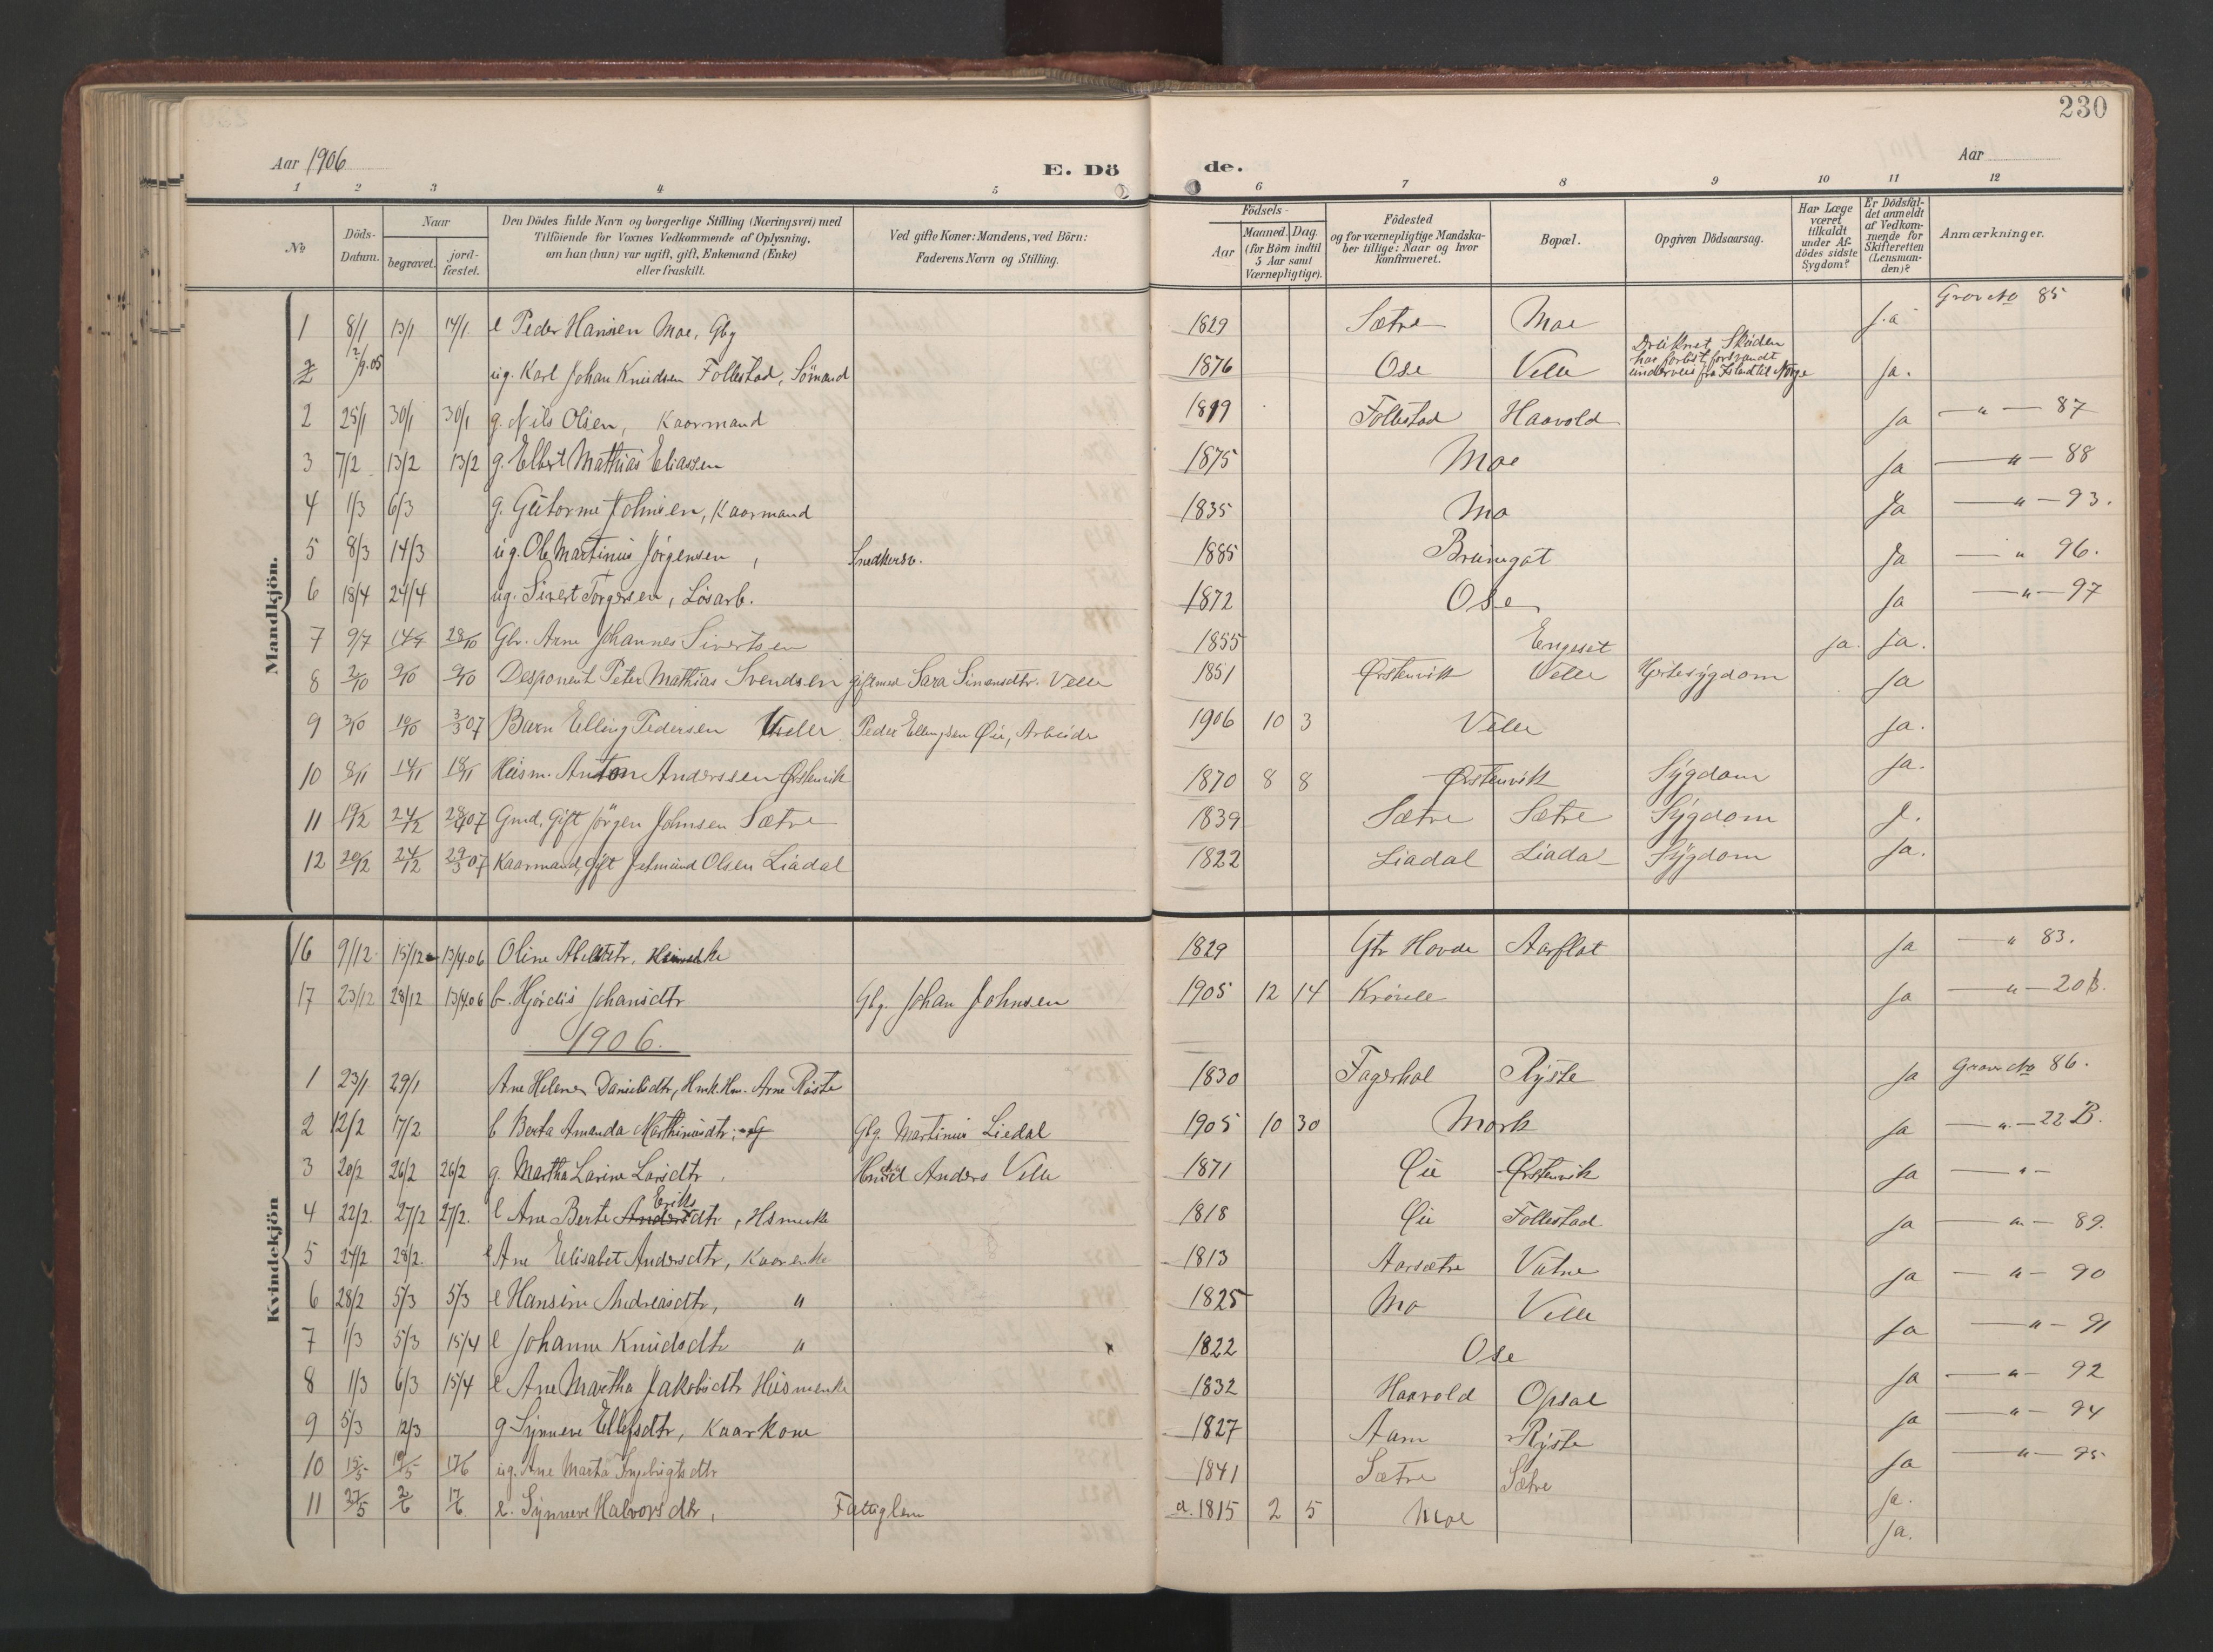 230
Aar 1906 E. Dö de. Aar
1 2 3 4 5 6 7 8 9 10 11 12
No
Döds-Datum.
Naar
begravet.
jord-fæstet.
Den Dödes fulde Navn og borgerlige Stilling (Næringsvei) med
Tilföiende for Voxnes Vedkommende af Oplysning,
om han (hun) var ugift, gift, Enkemand (Enke)
eller fraskilt.
Ved gifte Koner: Mandens, ved Börn:
Faderens Navn og Stilling.
Födsels-
Aar
Maaned. Dag.
(for Börn indtil
5 Aar samt
Værnepligtige).
Födested
og for værnepligtige Mandska-
ber tillige: Naar og hvor
konfirmeret.
Bopæl.
Opgiven Dödsaarsag.
Har Læge
været
tilkaldt
under Af-
dödes sidste
Sygdom?
Er Dödsfal-
det anmeldt
af Vedkom-
mende for
Skifteretten
(Lensman-
den)?
Anmærkninger.
Mandkjön.
1 8/1 13/1 14/1 e Peder Hansen Moe, Gbg 1829 Sætre Moe ja Grav No 85
2 /9.05 ug. Karl Johan Knudsen Follestad, Sömand 1876 Ose Velle Druknet, Skøden har forlist, forsvandt underveis fra Island til Norge Ja.
2 25/1 30/1 30/1 g. Nils Olsen, Kaarmand 1819 Follestad Haavold Ja — " — 87
3 7/2 13/2 13/2 g. Elbert Mathias Eliassen 1875 Moe Ja — " — 88
4 1/3 6/3 g. Guttorme Johnsen, Kaarmand 1835 Mo Ja — " — 93.
5 8/3 14/3 ug. Ole Martinus Jörgensen, Snedkersv. 1885 Brungot Ja — " 96.
6 18/4 24/4 ug. Sivert Torgersen, Lösarb. 1872 Ose Ja — " — 97
7 9/7 14/7 28/10 Gbr. Arne Johannes Sivertsen 1855 Engeset ja. Ja.
8 2/10 9/10 9/10 Desponent Peter Mathias Svendsen gift med Sara Simonsdtr. Velle 1851 Ørstenvik Velle Hjertesygdom Ja
9 3/10 10/10 3/3 07 Barn Elling Pedersen Velle Peder Ellingsen Øie, Arbeider 1906 10 3 Velle Ja.
10 8/11 14/11 18/11 Husm. Anton Anderssen Ørstenvik 1870 8 8 Ørstenvik Sygdom Ja.
11 19/12 24/12 07 Gmd. Gift Jörgen Johnsen Sætre 1839 Sætre Sætre Sygdom J.
12 20/12 24/12 29/3 07 Kaarmand, gift Jetmund Olsen Liadal 1822 Liadal Liadal Sygdom Ja.
Kvindekjön
16 9/12 15/12 13/4 06 Oline Abelsdtr, 1829 Gtr Hovde Aarflot Ja — " 83.
17 23/12 28/12 13/4 06 b. Hjördis Johansdtr Gbg. Johan Johnsen 1905 12 14 Krövle Ja — " — 20 B.
1906.
1 23/1 29/1 Ane Helene Danielsdtr, Hmk. Hm. Arne Röste 1830 Fagerhol Ryste Ja Grav No 86.
2 12/2 17/2 b Berta Amanda Marthinusdtr, Gbg. Martinus Liedal 1905 10 30 Mork Ja — " — 22 B.
3 20/2 26/2 26/2 g. Martha Larine Larsdtr. Anders Velle 1871 Øie Ørstenvik Ja — " —
4 22/2. 27/2 27/2. e Ane Berte Anders Eriksdtr, Hsmenke 1818 Øie Follestad Ja — " — 89.
5 24/2 28/2. e Ane Elisabet Andersdtr, Kaarenke 1813 Aarsætre Vatne Ja — " — 90
6 28/2 5/3 5/3 e Hansine Andreasdtr, " 1825 Mo Velle Ja — " — 91
7 1/3 5/3 15/4 e Johanne Knudsdtr " 1822 Ose Ja — " — 92
8 1/3 6/3 15/4 e Ane Martha Jakobsdtr Husmenke 1832 Haavold Opsal Ja — " — 94
9 5/3 12/3 g Synneve Ellefsdtr, Kaarkone 1827 Aam Ryste Ja — " — 95
10 15/5 19/5 17/6 ug. Ane Marta Ingebrigtsdtr 1841 Sætre Sætre Ja.
11 27/5 2/6 17/6 e. Synneve Halvorsdtr, Fattiglem d. 1815 2 5 Moe Ja.